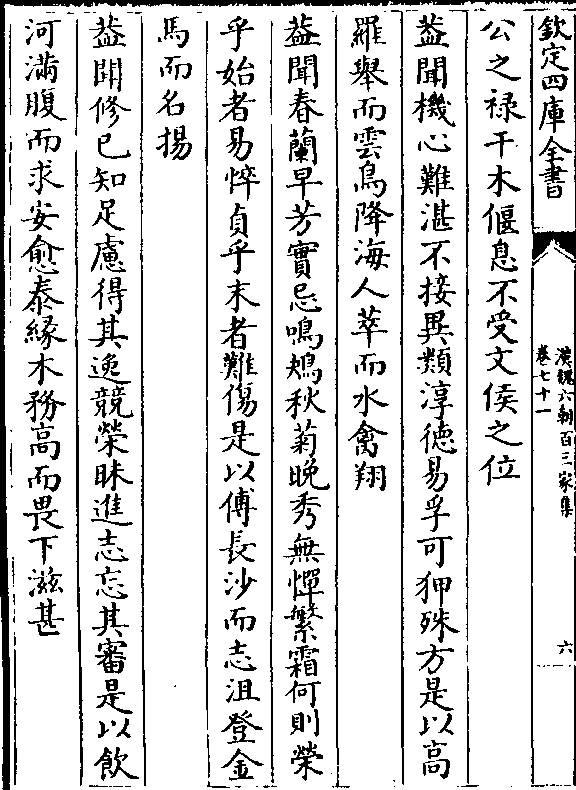 欽定四庫全書
漢魏六朝百三家集
卷七十一
六
公之禄干木偃息不受文侯之位
葢聞機心難湛不接異類淳徳易孚可狎殊方是以高
羅舉而雲鳥降海人萃而水禽翔
葢聞春蘭早芳實忌鳴鴂秋菊晚秀無憚繁霜何則榮
乎始者易悴貞乎末者難傷是以傅長沙而志沮登金
馬而名揚
葢聞修已知足慮得其逸競榮昧進志忘其審是以飲
河滿腹而求安愈泰緣木務高而畏下滋甚